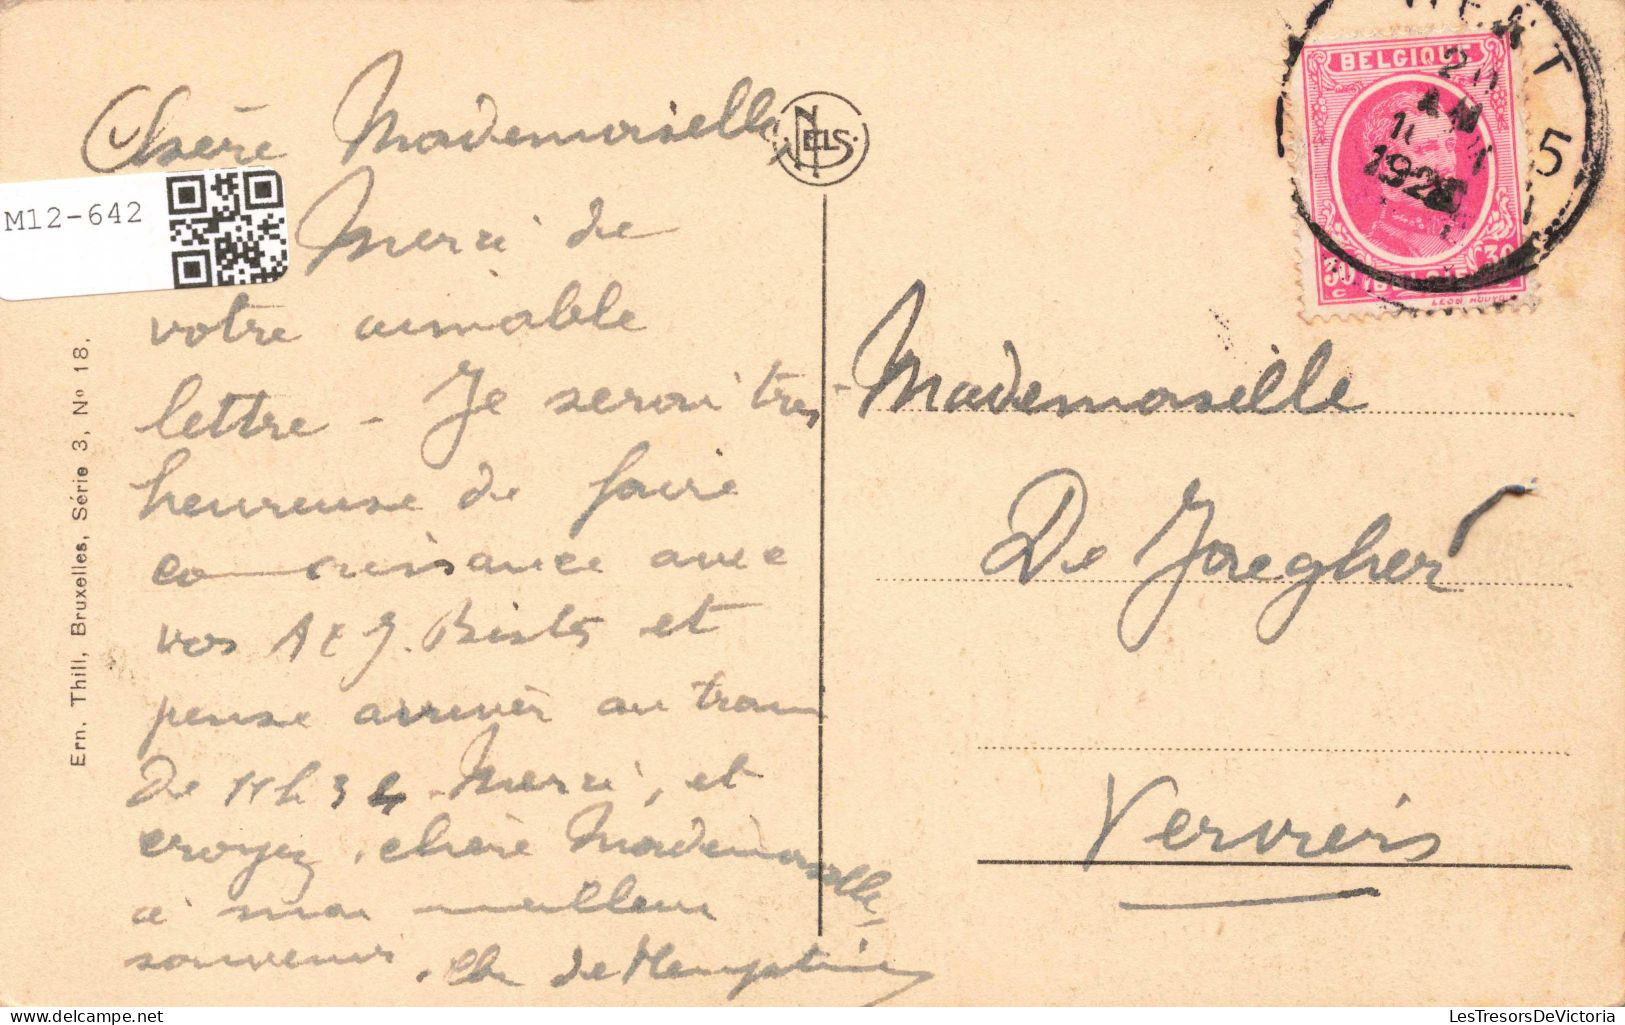 Chère Mademoiselle,
Merci de
votre aimable
lettre - Je serai très
heureuse de faire
connaissance avec
vos et
pense arriver au train
De 11 h 34 - Merci, et
croyez, chère Mademoiselle,
à mon meilleur
souvenir.
de Hemptinne
NELS.
M12-642
Ern. Thill, Bruxelles, Série 3, No 18.
BELGIQUE
30 c BELGIË 30
5
Mademoiselle
De Jaegher
Verviers
LesTresorsDeVictoria
delcampe.net